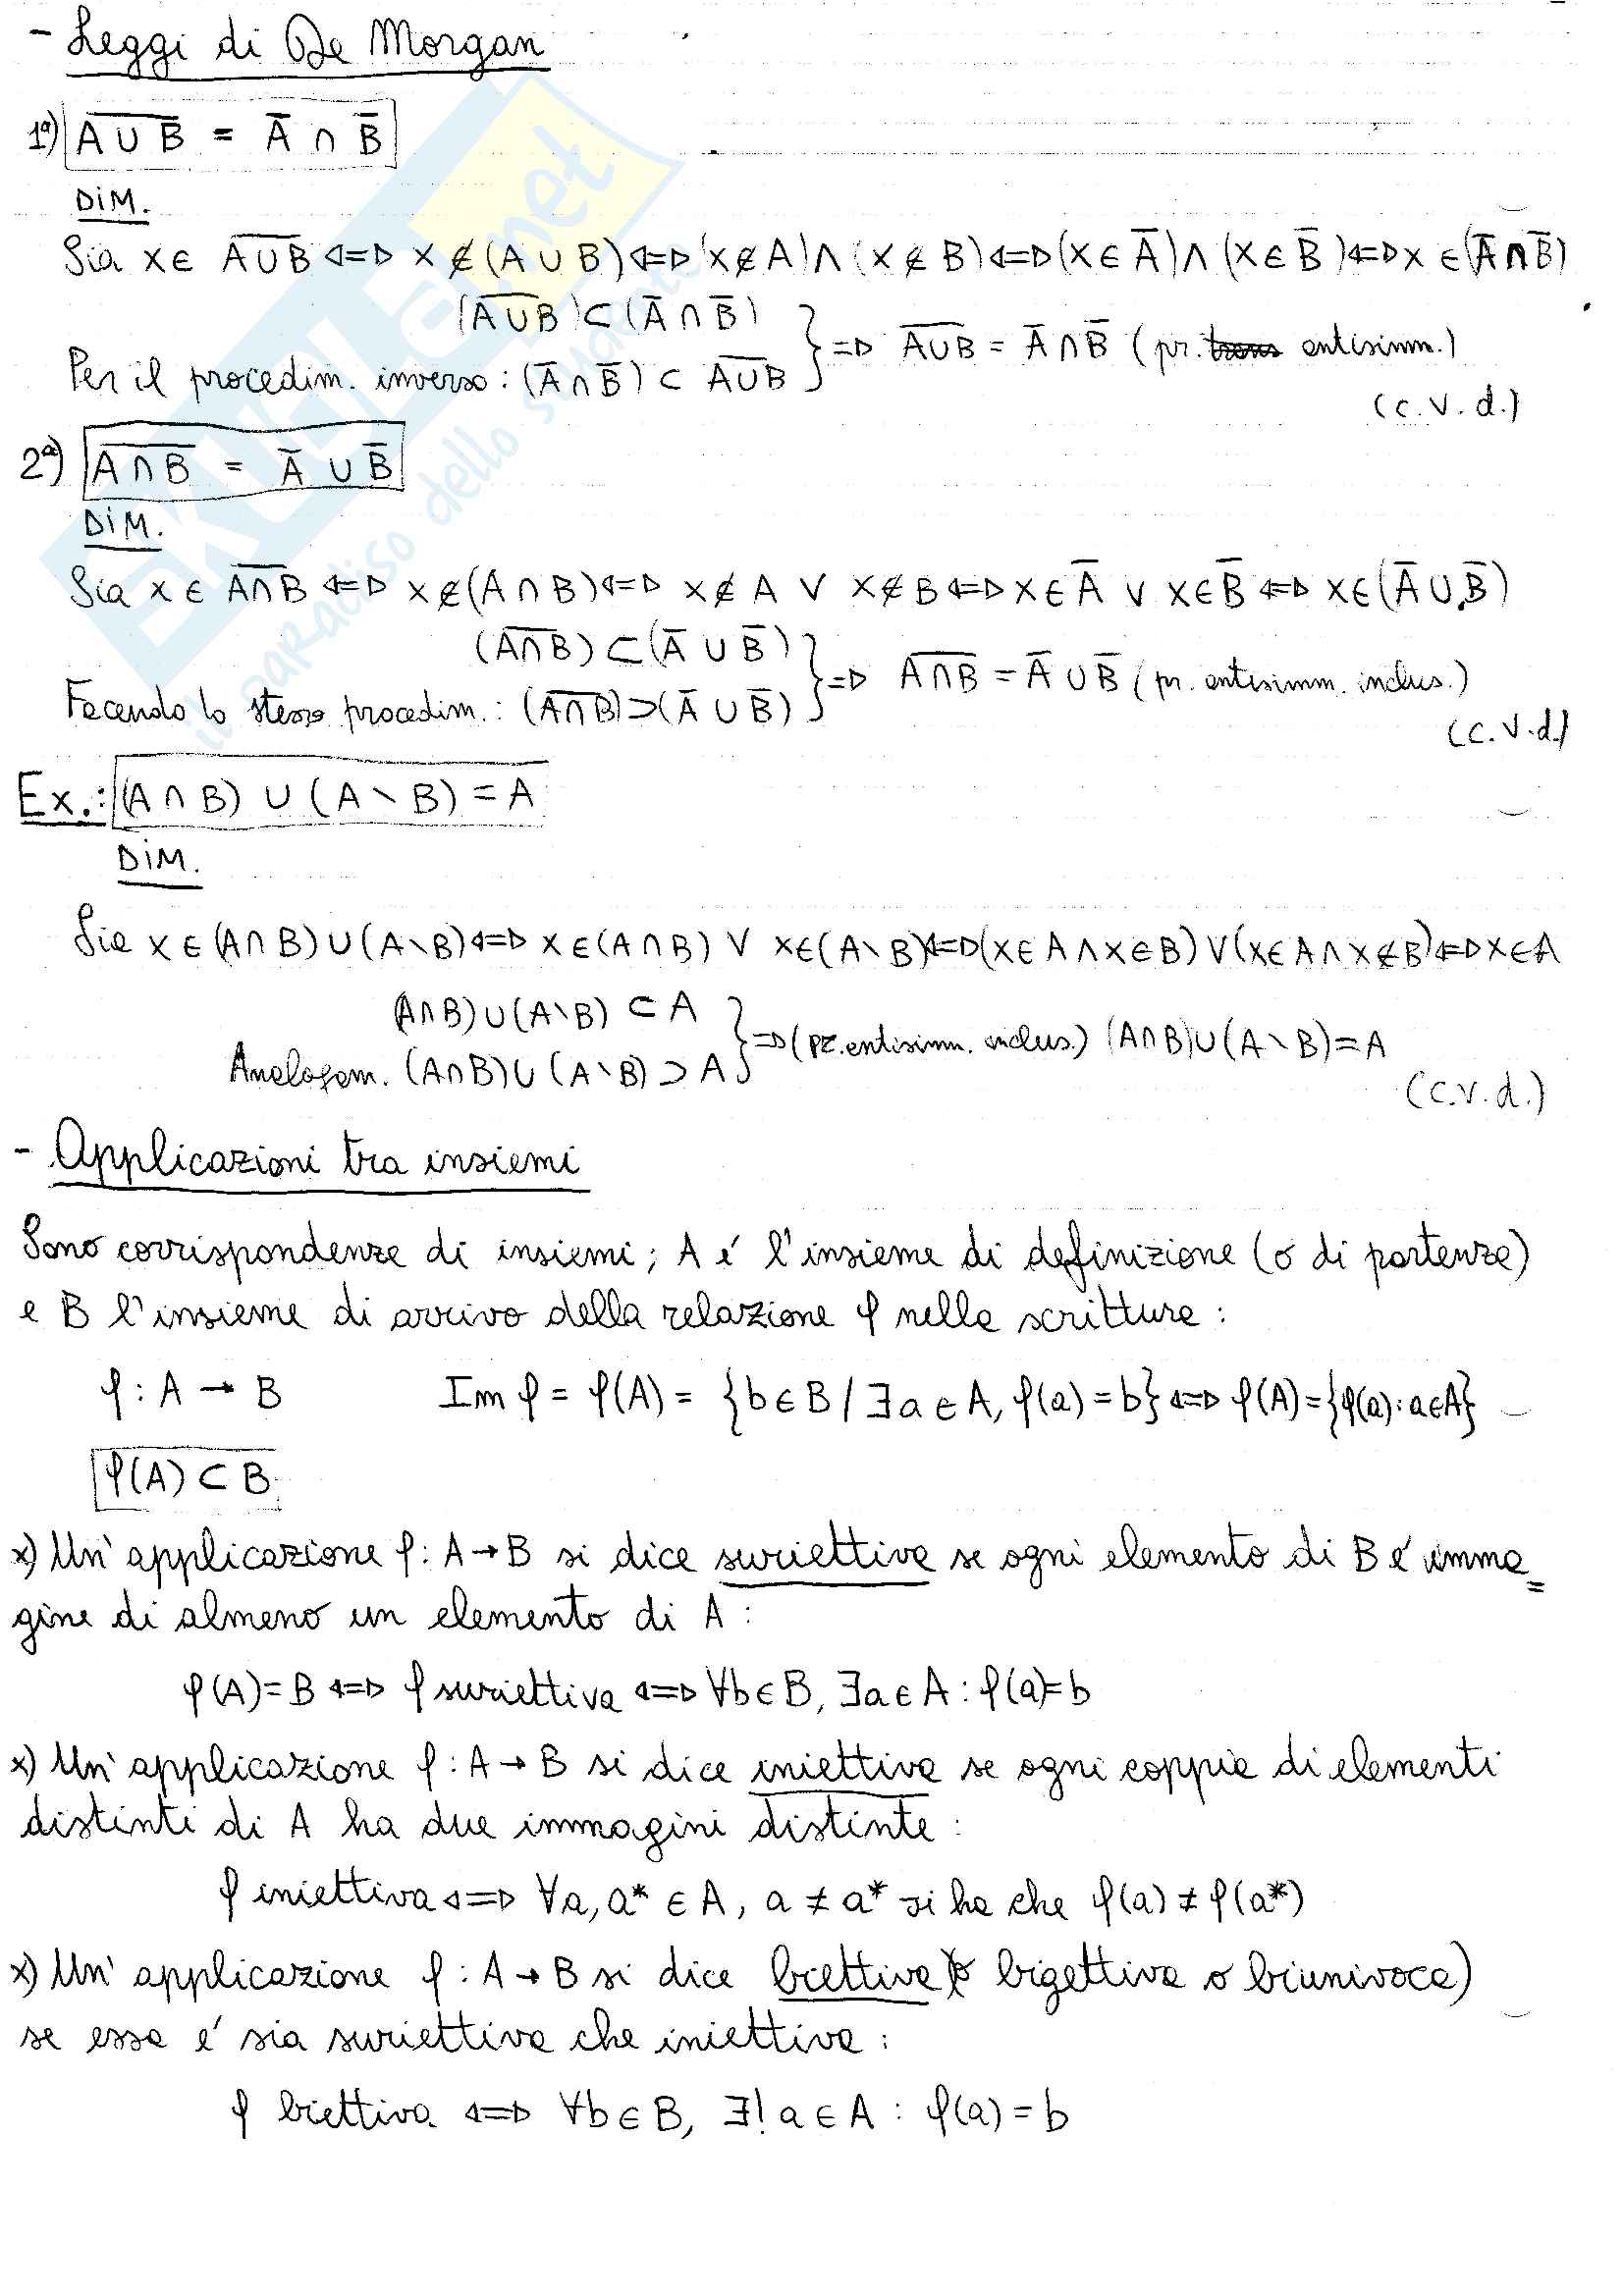 - Leggi di De Morgan
1ª) A̅ ̅U̅ ̅B̅ = A̅ ∩ B̅
DIM.
Sia x ∈ A̅U̅B̅ ⇔ x ∉ (A ∪ B) ⇔ (x ∉ A) ∧ (x ∉ B) ⇔ (x ∈ A̅) ∧ (x ∈ B̅) ⇔ x ∈ (A̅ ∩ B̅)
(A̅U̅B̅) ⊂ (A̅ ∩ B̅)
Per il procedim. inverso: (A̅ ∩ B̅) ⊂ A̅U̅B̅ } ⇒ A̅U̅B̅ = A̅ ∩ B̅ (pr. antisimm.)
(c.v.d.)
2ª) A̅∩̅B̅ = A̅ ∪ B̅
DIM.
Sia x ∈ A̅∩̅B̅ ⇔ x ∉ (A ∩ B) ⇔ x ∉ A ∨ x ∉ B ⇔ x ∈ A̅ ∨ x ∈ B̅ ⇔ x ∈ (A̅ ∪ B̅)
(A̅∩̅B̅) ⊂ (A̅ ∪ B̅)
Facendo lo stesso procedim.: (A̅∩̅B̅) ⊃ (A̅ ∪ B̅) } ⇒ A̅∩̅B̅ = A̅ ∪ B̅ (pr. antisimm. inclus.)
(c.v.d.)
Ex.: (A ∩ B) ∪ (A \ B) = A
DIM.
Sia x ∈ (A ∩ B) ∪ (A \ B) ⇔ x ∈ (A ∩ B) ∨ x ∈ (A \ B) ⇔ (x ∈ A ∧ x ∈ B) ∨ (x ∈ A ∧ x ∉ B) ⇔ x ∈ A
(A∩B) ∪ (A\B) ⊂ A
Analogam. (A∩B) ∪ (A\B) ⊃ A } ⇒ (pr. antisimm. inclus.) (A∩B) ∪ (A \ B) = A
(c.v.d.)
- Applicazioni tra insiemi
Sono corrispondenze di insiemi; A é l'insieme di definizione (o di partenza)
e B l'insieme di arrivo della relazione φ nella scrittura:
φ : A → B Im φ = φ(A) = {b ∈ B / ∃ a ∈ A, φ(a) = b} ⇔ φ(A) = {φ(a) : a ∈ A}
φ(A) ⊂ B
x) Un' applicazione φ : A → B si dice suriettiva se ogni elemento di B é imma=
gine di almeno un elemento di A :
φ(A) = B ⇔ φ suriettiva ⇔ ∀b ∈ B, ∃a ∈ A : φ(a) = b
x) Un' applicazione φ : A → B si dice iniettiva se ogni coppia di elementi
distinti di A ha due immagini distinte :
φ iniettiva ⇔ ∀a, a* ∈ A, a ≠ a* si ha che φ(a) ≠ φ(a*)
x) Un' applicazione φ : A → B si dice biettiva (o bigettiva o biunivoca)
se essa é sia suriettiva che iniettiva :
φ biettiva ⇔ ∀b ∈ B, ∃! a ∈ A : φ(a) = b
il paradiso dello
.net